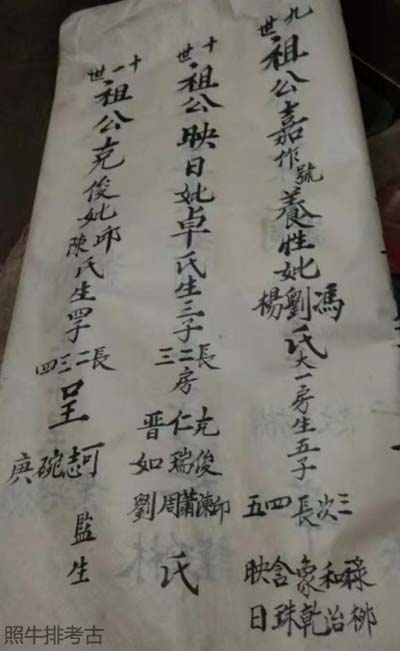 九世祖公嘉作號養性妣馮劉楊氏大一房生五子三次長四五 和治 象乾 含珠 映日
十世祖公映日妣卓氏生三子長二三房克俊仁瑞晋如邱陳蕭周劉氏
十一世祖公克俊妣邱陳氏生四子長二三四呈志碗庚監生
照牛排考古